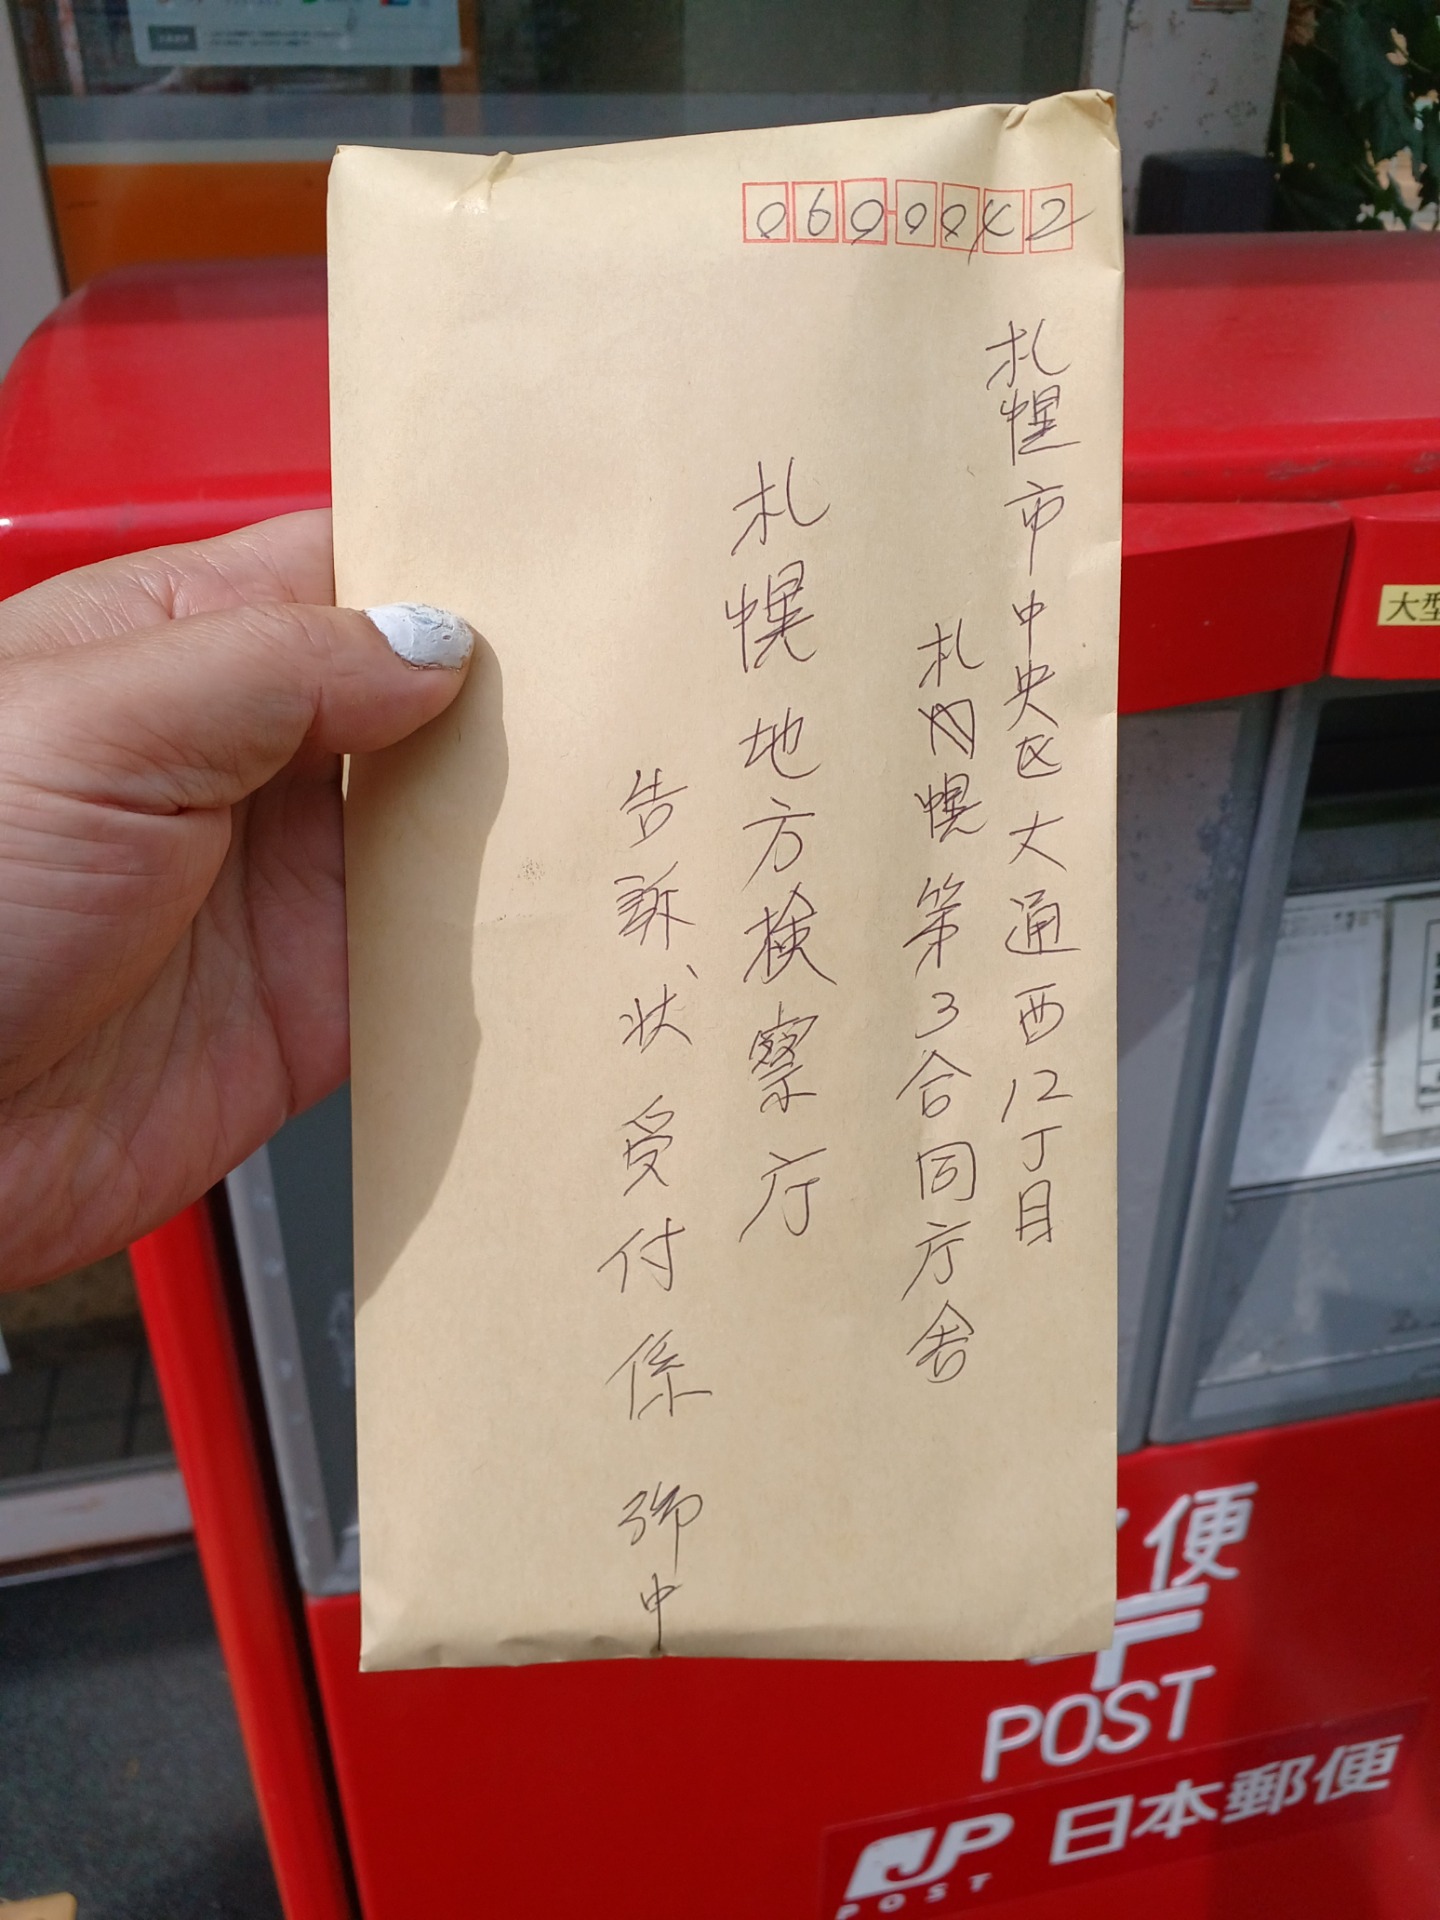 0600042
札幌市中央区大通西12丁目
札幌第3合同庁舎
札幌地方検察庁
告訴状受付係 御中
大型
便
〒
POST
JP
POST
日本郵便